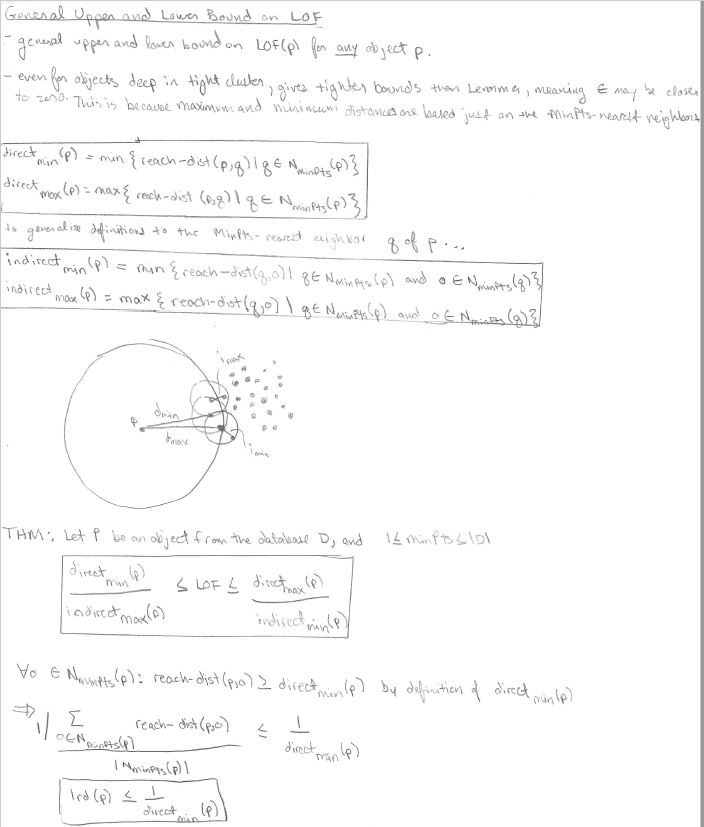 General Upper and Lower Bound on LOF
- general upper and lower bound on LOF(p) for any object p.
- even for objects deep in tight cluster, gives tighter bounds than Lemma, meaning ∈ may be closer
to zero. This is because maximum and minimum distances are based just on the MinPts-nearest neighbors
direct min(p) = min { reach-dist(p,q) | q ∈ N MinPts(p) }
direct max(p) = max { reach-dist (p,q) | q ∈ N MinPts(p) }
to generalize definitions to the MinPts-nearest neighbor q of p ...
indirect min(p) = min { reach-dist(q,o) | q ∈ N MinPts(p) and o ∈ N MinPts(q) }
indirect max(p) = max { reach-dist(q,o) | q ∈ N MinPts(p) and o ∈ N MinPts(q) }
i max
d min
P
d max
i min
THM: Let P be an object from the database D, and 1 ≤ minPts ≤ |D|
direct min(p) / indirect max(p) ≤ LOF ≤ direct max(p) / indirect min(p)
∀o ∈ N MinPts(p): reach-dist(p,o) ≥ direct min(p) by definition of direct min(p)
⇒ 1 / Σ o∈N MinPts(p) reach-dist(p,o) / |N MinPts(p)| ≤ 1 / direct min(p)
lrd(p) ≤ 1 / direct min(p)